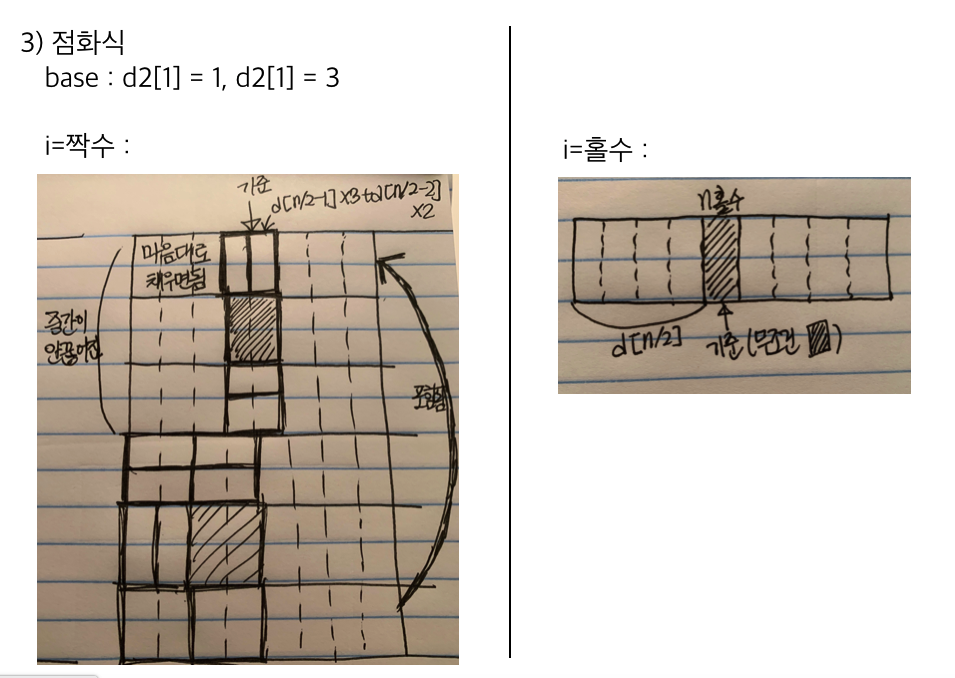 3) 점화식
base : d2[1] = 1, d2[1] = 3
i=짝수 :
기준
d[n/2-1]×3 to d[n/2-2]
×2
마음대로
채우면됨
중간이
포함됨
i=홀수 :
n홀수
d[n/2]
기준(무조건 )